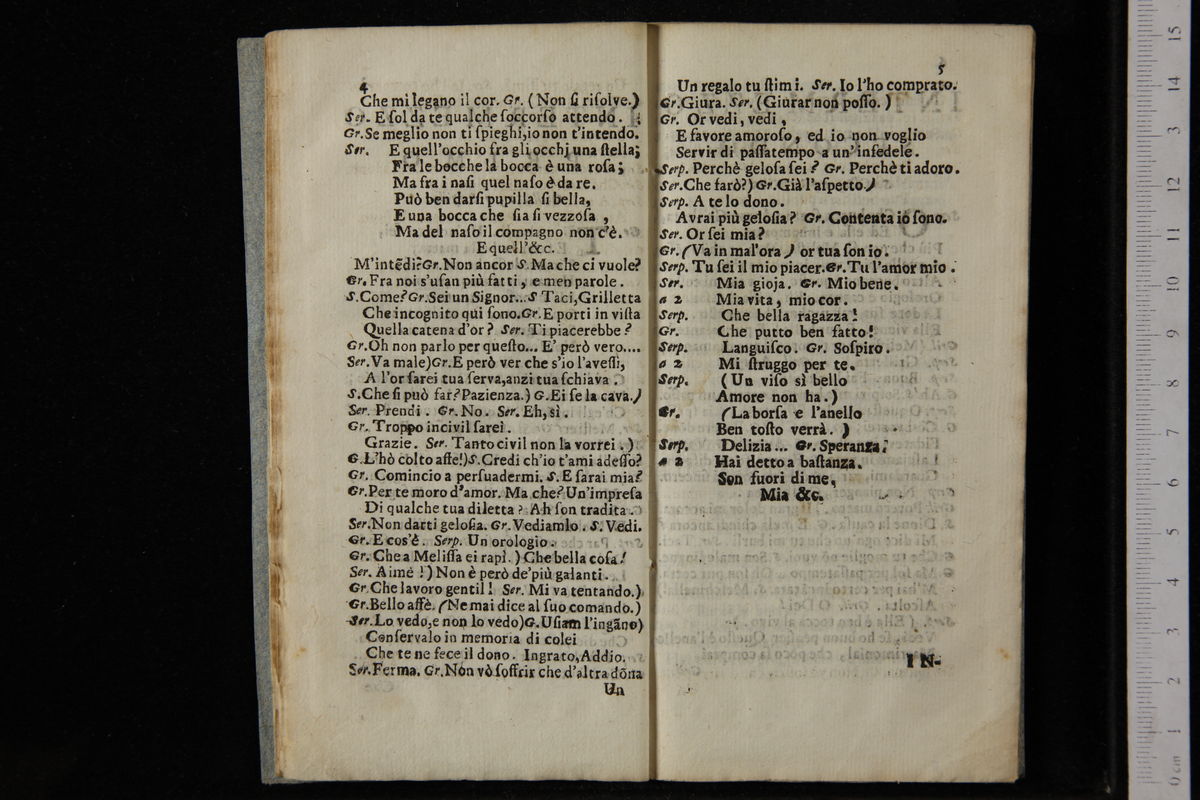 4
Che mi legano il cor. Gr. (Non ſi riſolve.)
Ser. E ſol da te qualche ſoccorſo attendo.
Gr. Se meglio non ti ſpieghi, io non t'intendo.
Ser. E quell'occhio fra gli occhi una ſtella;
Fra le bocche la bocca è una roſa;
Ma fra i naſi quel naſo è da re.
Può ben darſi pupilla ſi bella,
E una bocca che ſia ſi vezzoſa,
Ma del naſo il compagno non c'è.
E quell'&c.
M'intẽdi? Gr. Non ancor S. Ma che ci vuole?
Gr. Fra noi s'uſan più fatti, e men parole.
S. Come? Gr. Sei un Signor... S Taci, Grilletta
Che incognito qui ſono. Gr. E porti in viſta
Quella catena d'or? Ser. Ti piacerebbe?
Gr. Oh non parlo per queſto... E' però vero....
Ser. Va male) Gr. E però ver che s'io l'aveſſi,
A l'or ſarei tua ſerva, anzi tua ſchiava.
S. Che ſi può far? Pazienza.) G. Ei ſe la cava.)
Ser. Prendi. Gr. No. Ser. Eh, sì.
Gr. Troppo incivil ſarei.
Grazie. Ser. Tanto civil non la vorrei.)
G. L'hò colto affe!) S. Credi ch'io t'ami adeſſo?
Gr. Comincio a perſuadermi. S. E ſarai mia?
Gr. Per te moro d'amor. Ma che? Un'impreſa
Di qualche tua diletta? Ah ſon tradita.
Ser. Non darti geloſia. Gr. Vediamlo. S. Vedi.
Gr. E cos'è. Serp. Un orologio.
Gr. Che a Meliſſa ei rapì.) Che bella coſa!
Ser. Aimé!) Non è però de'più galanti.
Gr. Che lavoro gentil! Ser. Mi va tentando.)
Gr. Bello affè. (Ne mai dice al ſuo comando.)
Ser. Lo vedo, e non lo vedo) G. Uſiam l'ingãno)
Conſervalo in memoria di colei
Che te ne fece il dono. Ingrato, Addio.
Ser. Ferma. Gr. Non vò ſoffrir che d'altra dõna
Un
5
Un regalo tu ſtimi. Ser. Io l'ho comprato.
Gr. Giura. Ser. (Giurar non poſſo.)
Gr. Or vedi, vedi,
E favore amoroſo, ed io non voglio
Servir di paſſatempo a un'infedele.
Serp. Perchè geloſa ſei? Gr. Perchè ti adoro.
Ser. Che farò?) Gr. Già l'aſpetto.)
Serp. A te lo dono.
Avrai più geloſia? Gr. Contenta io ſono.
Ser. Or ſei mia?
Gr. (Va in mal'ora) or tua ſon io.
Serp. Tu ſei il mio piacer. Gr. Tu l'amor mio.
Ser. Mia gioja. Gr. Mio bene.
a 2 Mia vita, mio cor.
Serp. Che bella ragazza!
Gr. Che putto ben fatto!
Serp. Languiſco. Gr. Soſpiro.
a 2 Mi ſtruggo per te.
Serp. (Un viſo sì bello
Amore non ha.)
Gr. (La borſa e l'anello
Ben toſto verrà.)
Serp. Delizia... Gr. Speranza.
a 2 Hai detto a baſtanza.
Son fuori di me,
Mia &c.
IN-
15
14
13
12
11
10
9
8
7
6
5
4
3
2
1
0 cm